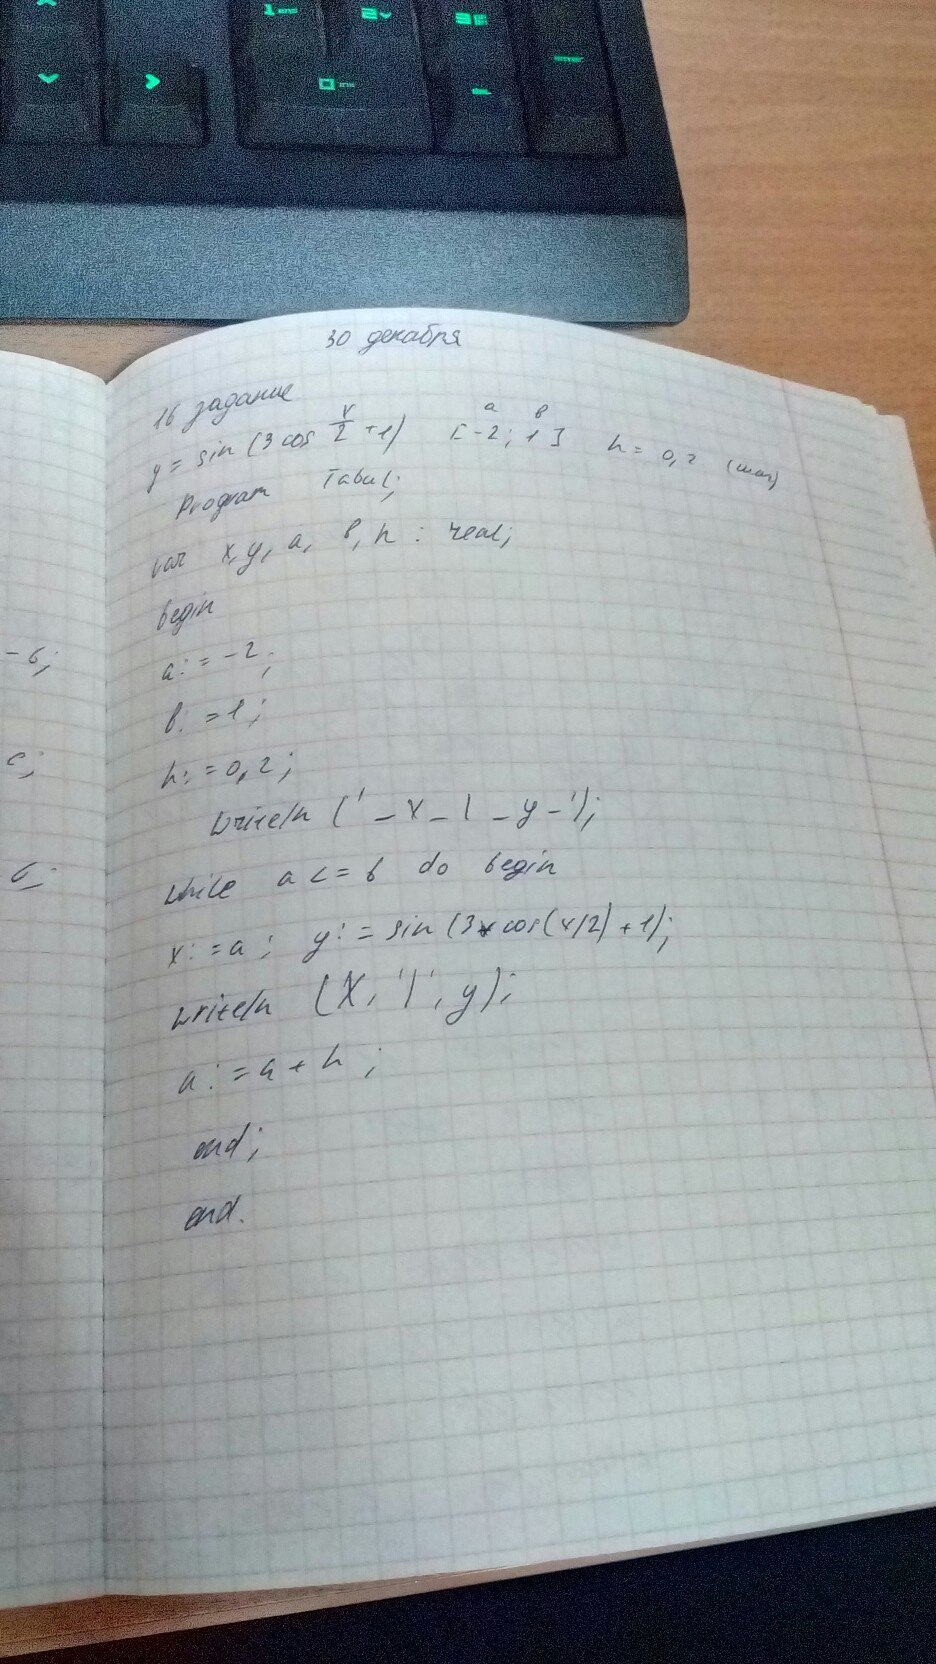 30 декабря
16 задание
a b
y = sin (3 cos x/2 +1) [-2; 1] h = 0,2 (шаг)
Program Tabul;
var x, y, a, b, h : real;
begin
a: = -2;
-6;
b: = 1;
c;
h: = 0,2;
writeln (' _ x _ | _ y _ ');
while a <= b do begin
x: = a; y: = sin (3* cos(x/2) +1);
writeln (x, '|', y);
a: = a + h ;
end;
end.